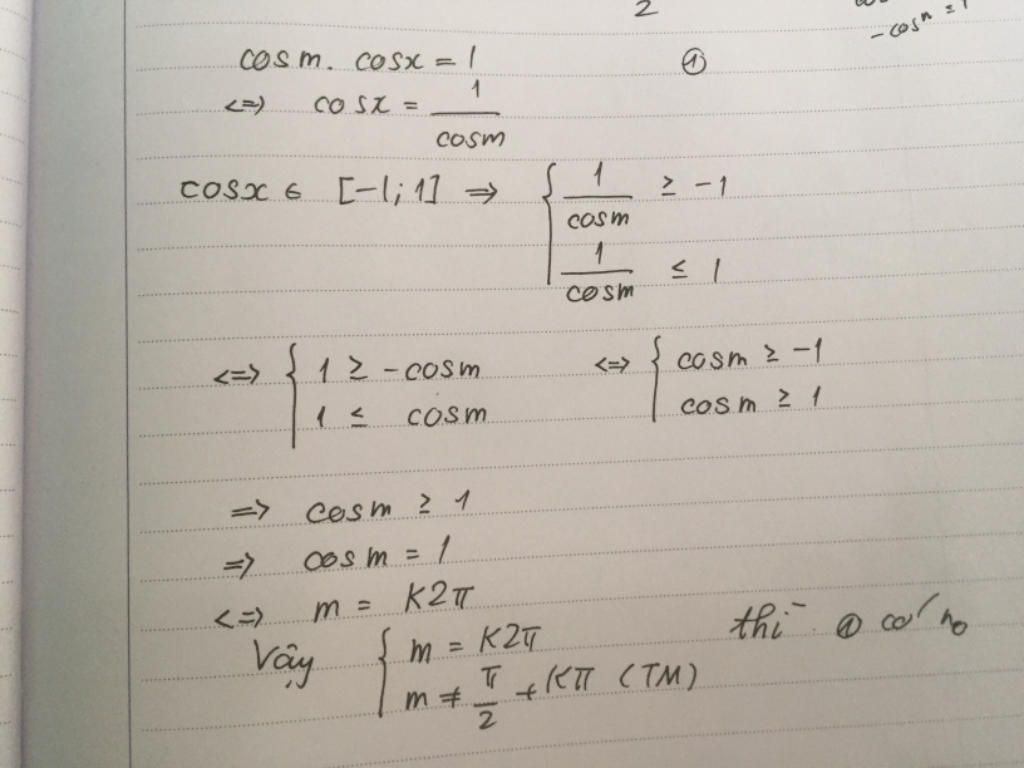 2
-cosⁿ = 1
cosm. cosx = 1 ①
<=> cosx = 1/cosm
cosx ∈ [-1; 1] => { 1/cosm ≥ -1
1/cosm ≤ 1
<=> { 1 ≥ -cosm <=> { cosm ≥ -1
1 ≤ cosm cosm ≥ 1
=> cosm ≥ 1
=> cosm = 1
<=> m = K2π
Vậy { m = K2π thì ① có no
m ≠ π/2 + Kπ (TM)